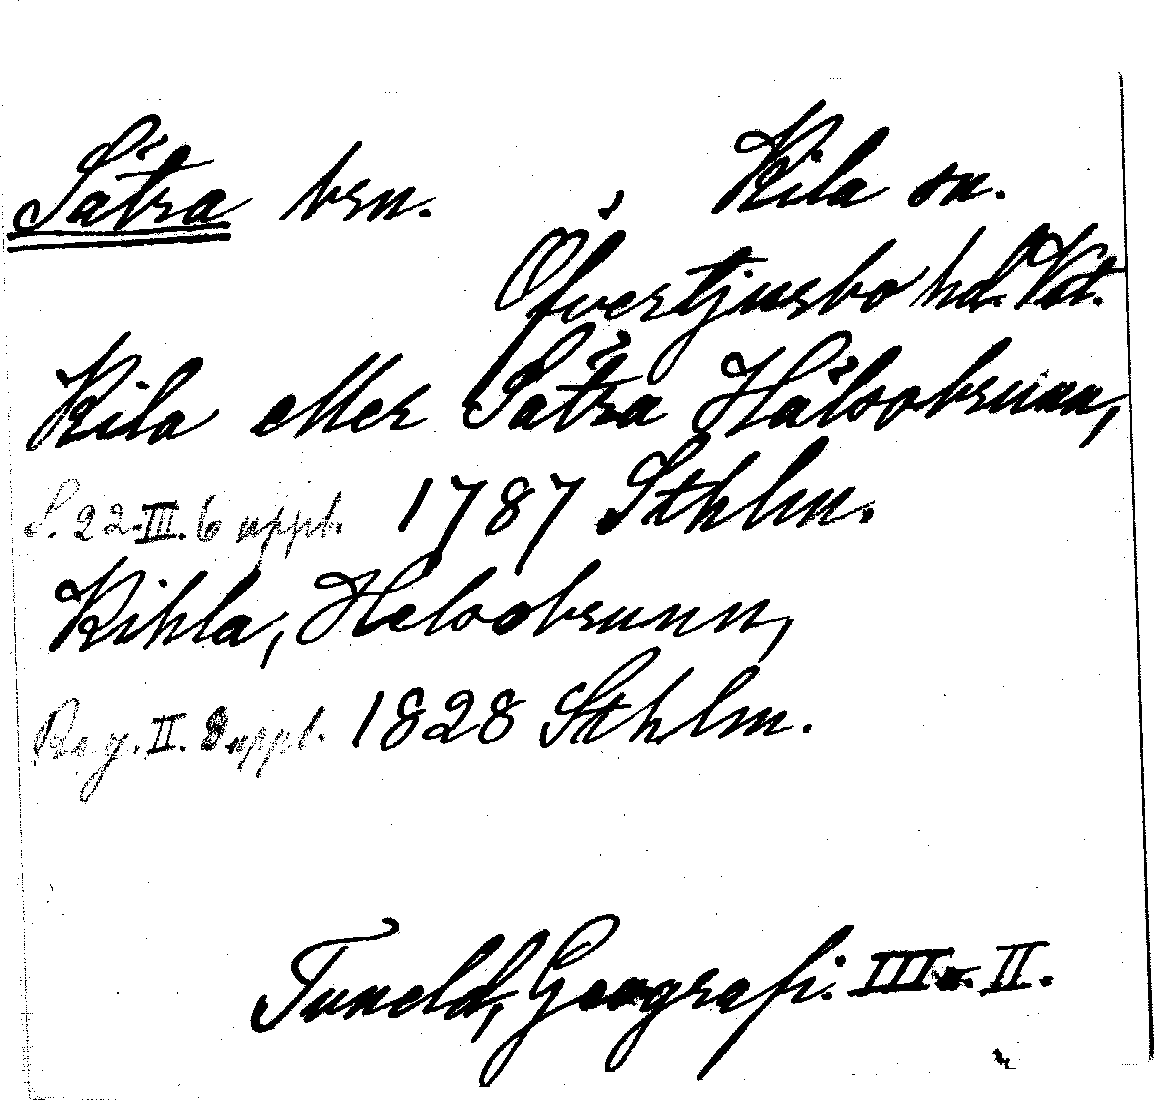 Sätra brn. Kila sn.
Öfvertjurbo hd. Vst.
Kila eller Sätra Hälsobrunn,
S. 22. III. 6 uppl. 1787 Sthlm.
Kihla, Helsobrunn,
II. 8 uppl. 1828 Sthlm.
Tuneld, Geografi. III o. II.